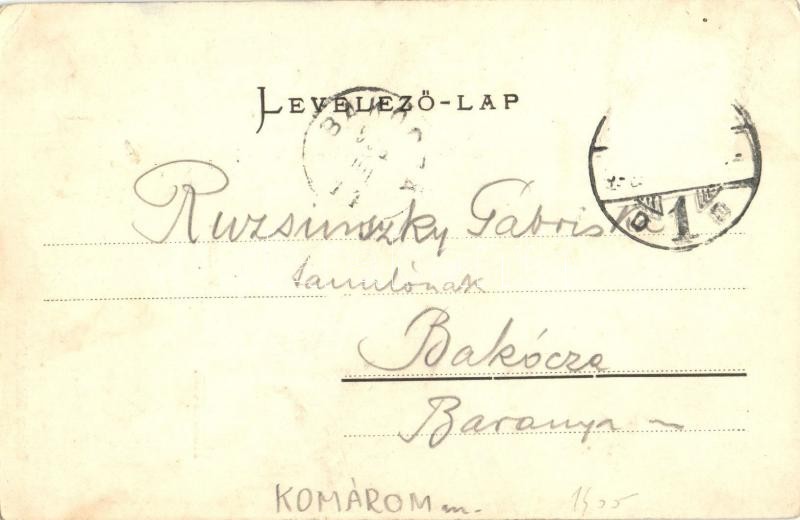 LEVELEZŐ-LAP
Ruzsinszky Gábriska
tanulónak
Bakócza
Baranya m
D 1 B
KOMÁROM m.